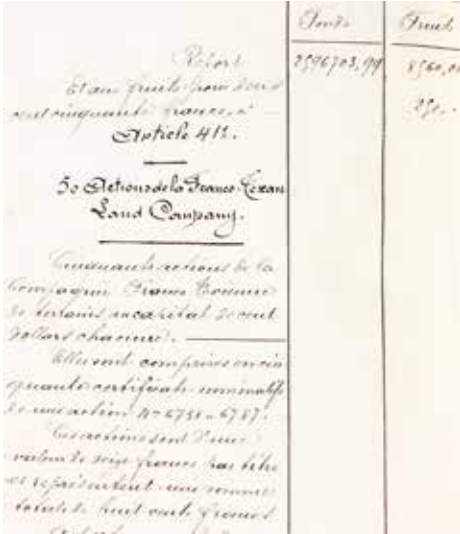 Fonds Fruits
Report 2596703,99 8560,00
Et aux fruits pour deux
cent cinquante francs, ci 250,-
Article 412.
50 Actions de la Franco-Texan
Land Company.
Cinquante actions de la
Compagnie Franco Texienne
de terrains au capital de cent
dollars chacune.
Elles sont comprises en cin
quante certificats nominatifs
de une action nos 6738 à 6787.
Ces actions sont d'une
valeur de seize francs par titre
et représentent une somme
totale de huit cents francs